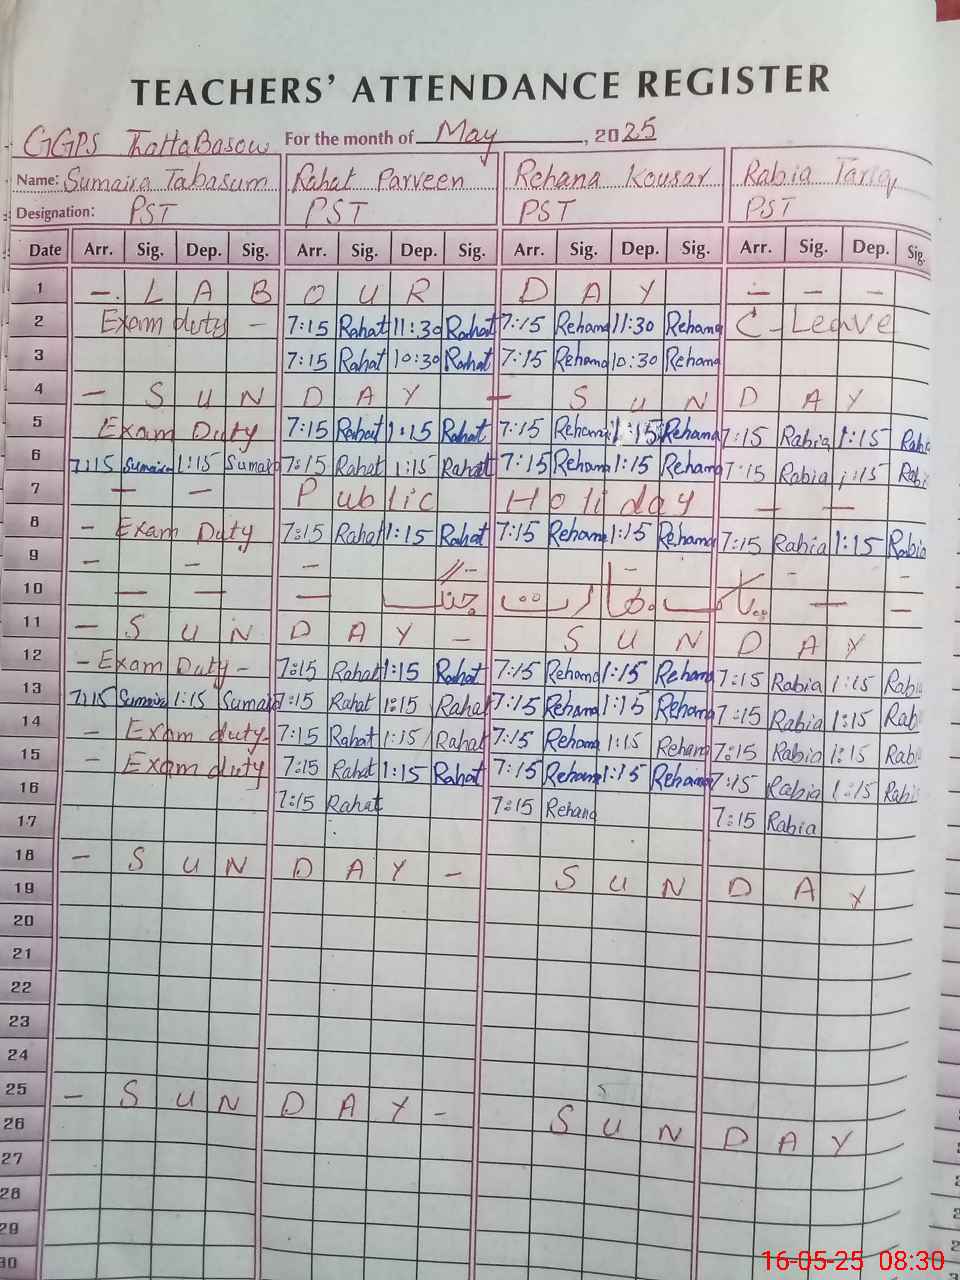 TEACHERS' ATTENDANCE REGISTER
GGPS ThattaBasow For the month of May, 2025
Name: Sumaira Tabasum Rahat Parveen Rehana Kousar Rabia Tariq
Designation: PST PST PST PST
Date Arr. Sig. Dep. Sig. Arr. Sig. Dep. Sig. Arr. Sig. Dep. Sig. Arr. Sig. Dep. Sig.
1 - L A B O U R D A Y - - -
2 Exam duty - 7:15 Rahat 11:30 Rahat 7:15 Rehana 11:30 Rehana C-Leave
3 7:15 Rahat 10:30 Rahat 7:15 Rehana 10:30 Rehana
4 - S U N D A Y - S U N D A Y
5 Exam Duty 7:15 Rahat 1:15 Rahat 7:15 Rehana 1:15 Rehana 7:15 Rabia 1:15 Rabia
6 7:15 Sumaira 1:15 Sumaira 7:15 Rahat 1:15 Rahat 7:15 Rehana 1:15 Rehana 7:15 Rabia 1:15 Rabi
7 - - Public Holiday - -
8 - Exam Duty 7:15 Rahat 1:15 Rahat 7:15 Rehana 1:15 Rehana 7:15 Rabia 1:15 Rabia
9 - - - - - -
10 - - - - -
11 - S U N D A Y - S U N D A Y
12 - Exam Duty - 7:15 Rahat 1:15 Rahat 7:15 Rehana 1:15 Rehana 7:15 Rabia 1:15 Rabia
13 7:15 Sumaira 1:15 Sumaira 7:15 Rahat 1:15 Rahat 7:15 Rehana 1:15 Rehana 7:15 Rabia 1:15 Rab
14 - Exam duty- 7:15 Rahat 1:15 Rahat 7:15 Rehana 1:15 Rehana 7:15 Rabia 1:15 Rabi
15 - Exam duty 7:15 Rahat 1:15 Rahat 7:15 Rehana 1:15 Rehana 7:15 Rabia 1:15 Rabi
16 7:15 Rahat 7:15 Rehana 7:15 Rabia
17
18 - S U N D A Y - S U N D A Y
19
20
21
22
23
24
25 - S U N D A Y - S U N D A Y
26
27
28
29
30
16-05-25 08:30